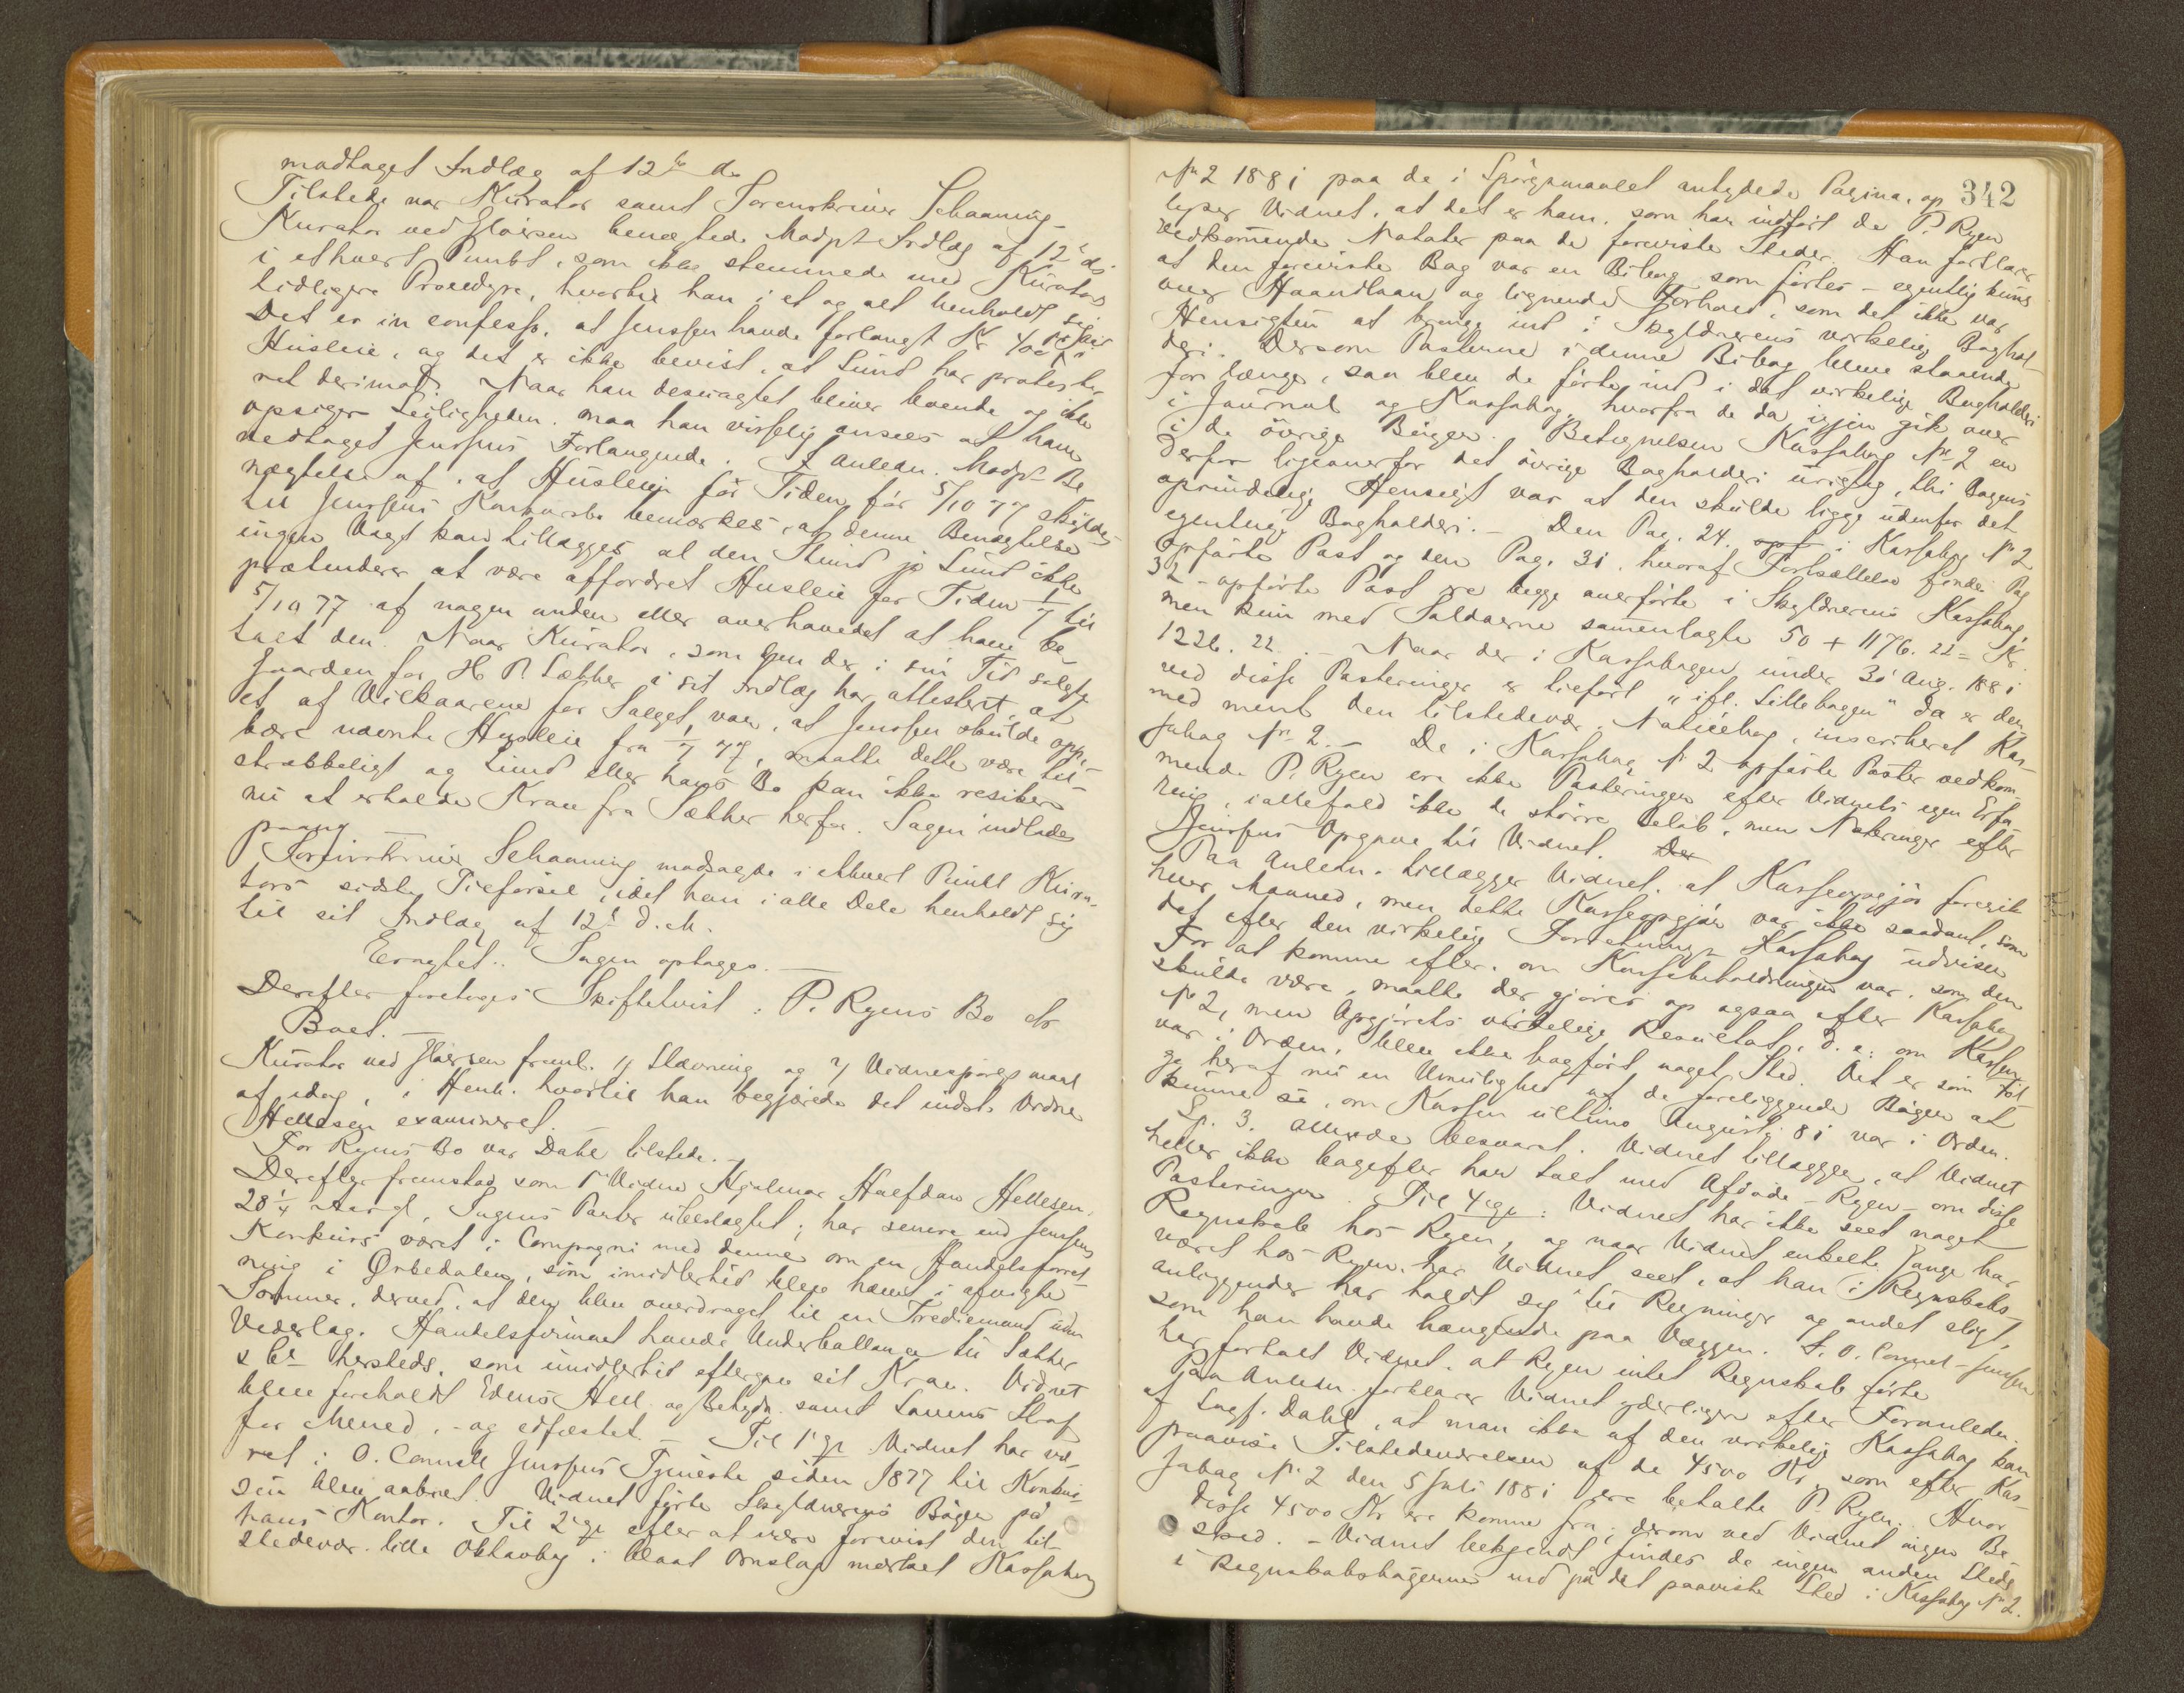 modtaget Indlæg af 12te ds
Tilstede var Kurator samt Sorenskriver Schaaning
Kurator ved Hoirsen benægtede Modpts Indlæg af 12te ds
i ethvert Punkt, som ikke stemmede med Kurators
tidligere Procedyre, hvortil han i et og alt henholdt sig
Det er in confesso, at Jenssen havde forlangt Kr 400 i
Husleie, og det er ikke bevist, at Lund har proteste-
ret derimod. Naar han desuagtet bliver boende og ikke
opsiger Leiligheden, maa han visselig ansees at have
vedtaget Jenssens Forlangende. I Anledn. Modpts Be
nægtelse af, at Husleje för Tiden før 5/10 77 skyldes
til Jenssens Konkursbo bemærkes, at denne Benægtelse
ingen Vægt kan tillægges al den Stund jo Lund ikke
prætenderer at være affordret Husleie for Tiden 1/7 til
5/10 77 af nogen anden eller overhovedet at have be-
talt den. Naar Kurator, som den der i sin Tid solgte
Gaarden for H. P. Sæther i sit Indlæg har attesteret, at
et af Vilkaarene for Salget var, at Jenssen skulde opp-
bære nævnte Husleie fra 1/7 77, maatte dette være til-
strækkeligt og Lund eller hans Bo kan ikke resikere
nu at erholde Krav fra Sæther herfor. Sagen indlades
paany.
Sorenskriver Schaaning modsagde i ethvert Punkt Kura-
tors sidste Tilførsel, idet han i alle Dele henholdt sig
til sit Indlæg af 12te d. M.
Eragtet: Sagen optages.
Derefter foretoges Skiftetvist: P. Ryens Bo ctr
Boet.
Kurator ved Hoirsen freml. 1) Stævning og 2) Vidnespörgsmaal
af idag, i Henh. hvortil han begjærede det indst. Vidne
Hellesen examineret.
For Ryens Bo var Dahl tilstede.
Derefter fremstod som 1ste Vidne Hjalmar Halfdan Hellesen,
28 1/4 Aar gl, Sagens Parter ubeslægtet; har senere end Jenssens
Konkurs været i Compagni med denne om en Handelsforret-
ning i Ørkedalen, som imidlertid blev hævet i afvigte
Sommer, derved, at den blev overdraget til en Trediemand uden
Vederlag. Handelsfirmaet havde Underballance til Sæther
& Co hersteds, som imidlertid eftergav sit Krav. Vidnet
blev foreholdt Edens Hell. og Betydn. samt Lovens Straf
for Mened, og edfæstet. Til 1ste Sp. Vidnet har væ-
ret i O. Connell Jenssens Tjeneste siden 1877 til Konkur-
sen blev aabnet. Vidnet förte Skyldnerens Böger på
hans Kontor. Til 2det Sp. efter at være forevist den til-
stedevær. lille Oktavbog i blaat Omslag mærket Kassabog
342
No 2 1881 paa de i Spörgsmaalet antydede Pagina, op
lyser Vidnet, at det er ham, som har indført de P. Ryen
vedkommende Notater paa de foreviste Steder. Han forklarer
at den foreviste Bog var en Bibog som førtes - egentlig kun
over Haandlaan og lignende Forhold, som det ikke var
Hensigten at bringe ind i Skyldnerens virkelig Boghol-
deri. Dersom Posterne i denne Bibog bleve staaende
for længe, saa blev de førte ind i det virkelige Bogholderi
i Journal og Kassabog, hvorfra de da igjen gik over
i de övrige Böger. Betegnelsen Kassabog No 2 er
derfor ligeoverfor det övrige Bogholderi urigtig, thi Bogens
oprindelige Hensigt var at den skulde ligge udenfor det
egentlige Bogholderi. - Den Pag. 24. opf i Kassabog No 2
opførte Post og den Pag. 31, hvoraf Fortsættelse findes Pag
32 - opførte Post ere begge overførte i Skyldnerens Kassabog,
men kun med Saldoerne sammenlagte 50 + 1176.22 = Kr.
1226.22. - Naar der i Kassabogen under 31 Aug. 1881
ved disse Posteringer er tilført "ifl. Lillebogen" da er der-
med ment den tilstedevær. Noticebog, inscriberet Kas-
sabog No 2. - De i Kassabog No 2 opførte Poster vedkom-
mende P. Ryen ere ikke Posteringer efter Vidnets egen Erfa-
ring, iallefald ikke de större Belöb, men Noteringer efter
Jenssens Opgave til Vidnet. Der
Paa Anledn. tillægger Vidnet, at Kasseopgjör foregik
hver Maaned, men dette Kasseopgjör var ikke saadant, som
det efter den virkelige Forretnings Kassabog udviser
For at komme efter, om Kassabeholdningen var, som den
skulde være, maatte der gjöres op ogsaa efter Kassabog
No 2, men Opgjörets virkelige Resultat, d. e: om Kassen
var i Orden, blev ikke bogført noget Sted. Det er som Föl-
ge heraf nu en Umulighed af de foreliggende Böger at
kunne se, om Kassen ultimo August 81 var i Orden.
Sp. 3. allerede besvaret. Vidnet tillægger, at Vidnet
heller ikke bagefter har talt med Afdöde - Ryen - om disse
Posteringer. Til 4de Sp: Vidnet har ikke seet noget
Regnskab hos Ryen, og naar Vidnet enkelte Gange har
været hos Ryen, har Vidnet seet, at han i Regnskabs-
anliggender har holdt sig til Regninger og andet sligt,
som han havde hængende paa Væggen. O. Connel-Jenssen
har fortalt Vidnet, at Ryen intet Regnskab förte
Paa Anledn. forklarer Vidnet yderligere efter Foranledn.
af Sagf. Dahl, at man ikke af den virkelig Kassabog kan
paavise Tilstedeværelsen af de 4500 Kr, som efter Kas-
sabog No 2 den 5 Juli 1881 ere betalte P. Ryen. Hvor
disse 4500 Kr ere komne fra, derom ved Vidnet ingen Be
sked. - Vidnet bekjendt findes de ingen anden Steds
i Regnskabsbögerne end på det paaviste Sted i Kassabog No 2.